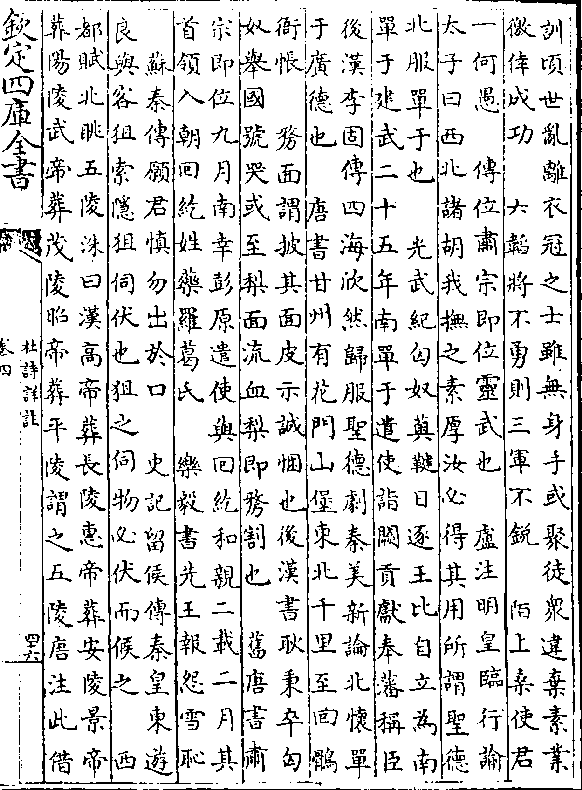 訓頃世亂離衣冠之士雖無身手或聚徒衆違棄素業
徼倖成功　六韜將不勇則三軍不銳　陌上桑使君
一何愚　傳位肅宗即位靈武也　盧注明皇臨行諭
太子曰西北諸胡我撫之素厚汝必得其用所謂聖德
北服單于也　光武紀匈奴薁鞬日逐王比自立為南
單于建武二十五年南單于遣使詣闕貢獻奉藩稱臣
後漢李固傳四海欣然歸服聖德劇秦美新論北懷單
于廣德也　唐書甘州有花門山堡東北千里至回鶻
衙帳　剺面謂披其面皮示誠悃也後漢書耿秉卒匈
奴舉國號哭或至梨面流血梨即剺割也　舊唐書肅
宗即位九月南幸彭原遣使與回紇和親二載二月其
首領入朝回紇姓藥羅葛氏　樂毅書先王報怨雪恥
蘇秦傳願君慎勿出於口　史記留侯傳秦皇東遊
良與客狙索隱狙伺伏也狙之伺物必伏而候之　西
都賦北眺五陵洙曰漢高帝葬長陵惠帝葬安陵景帝
葬陽陵武帝葬茂陵昭帝葬平陵謂之五陵唐注此借
欽定四庫全書
杜詩詳註
卷四
四六